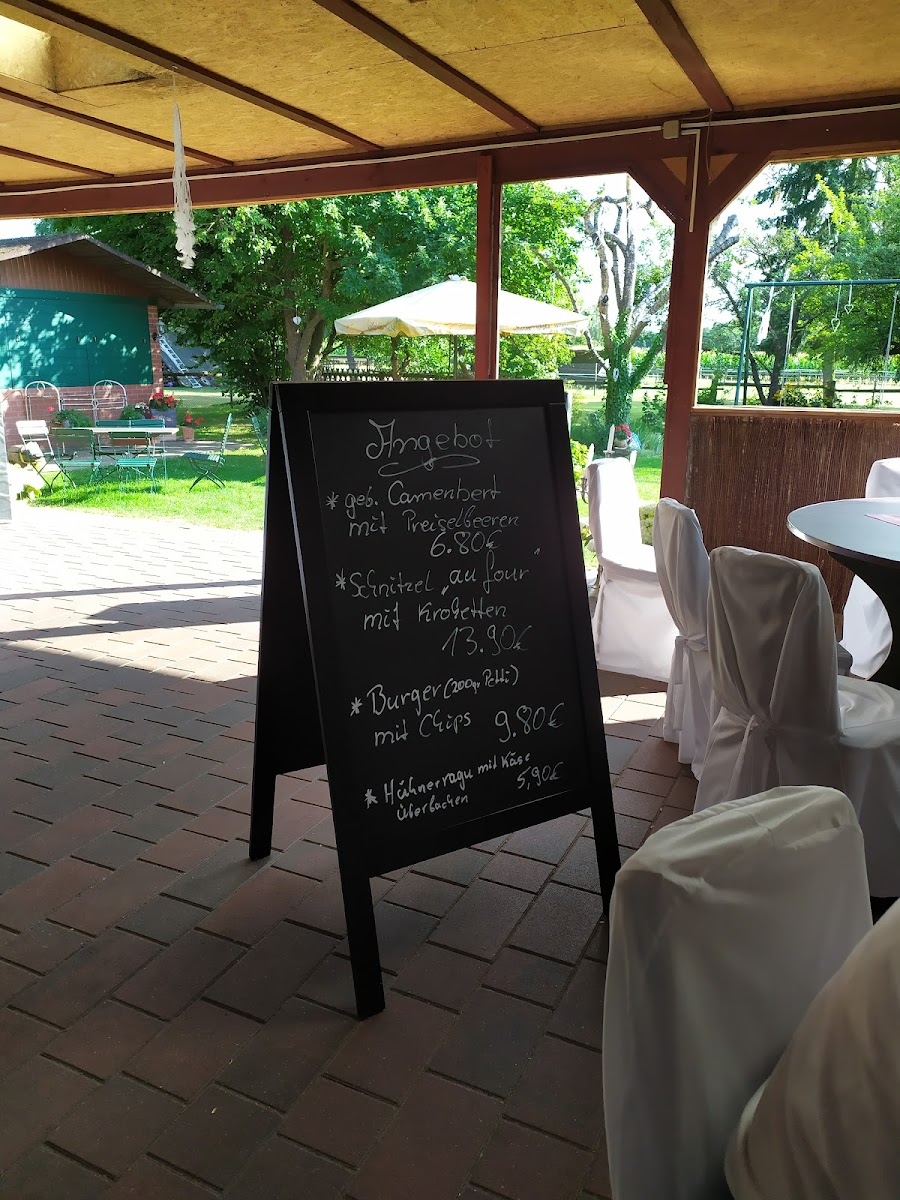 Angebot
* geb. Camenbert
mit Preiselbeeren
6.80€
* Schnitzel „au four"
mit Kroketten
13.90€
* Burger (200gr. Patti)
mit Chips 9.80€
* Hühnerragu mit Käse
überbachen 5,90€